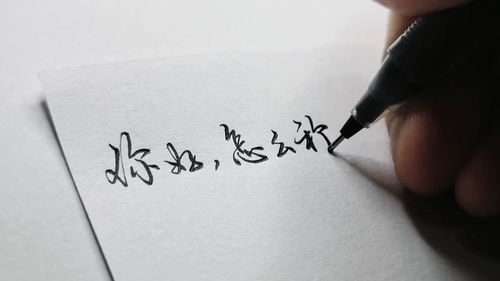 你好，怎么称